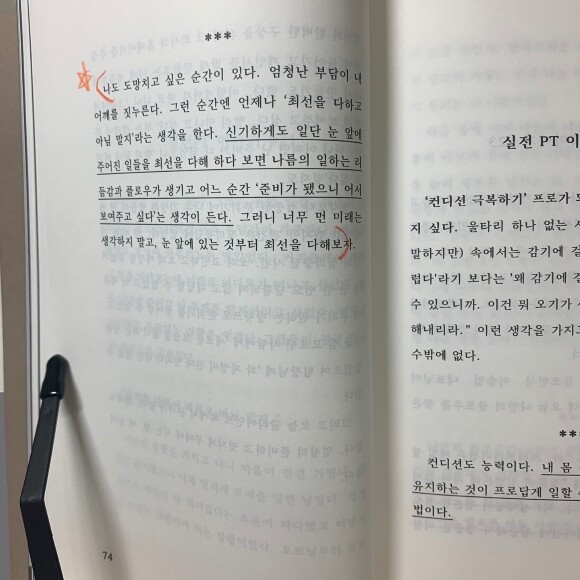 ***
나도 도망치고 싶은 순간이 있다. 엄청난 부담이 내
어깨를 짓누른다. 그런 순간엔 언제나 '최선을 다하고
아님 말지'라는 생각을 한다. 신기하게도 일단 눈 앞에
주어진 일들을 최선을 다해 하다 보면 나름의 일하는 리
듬감과 플로우가 생기고 어느 순간 '준비가 됐으니 어서
보여주고 싶다'는 생각이 든다. 그러니 너무 먼 미래는
생각하지 말고, 눈 앞에 있는 것부터 최선을 다해보자.
74
실전 PT 이
'컨디션 극복하기' 프로가 되
지 싶다. 울타리 하나 없는
말하지만) 속에서는 감기에 걸
렵다'라기 보다는 '왜 감기에 걸
수 있으니까. 이건 뭐 오기가
해내리라." 이런 생각을 가지고
수밖에 없다.
**
컨디션도 능력이다. 내 몸
유지하는 것이 프로답게 일할
법이다.